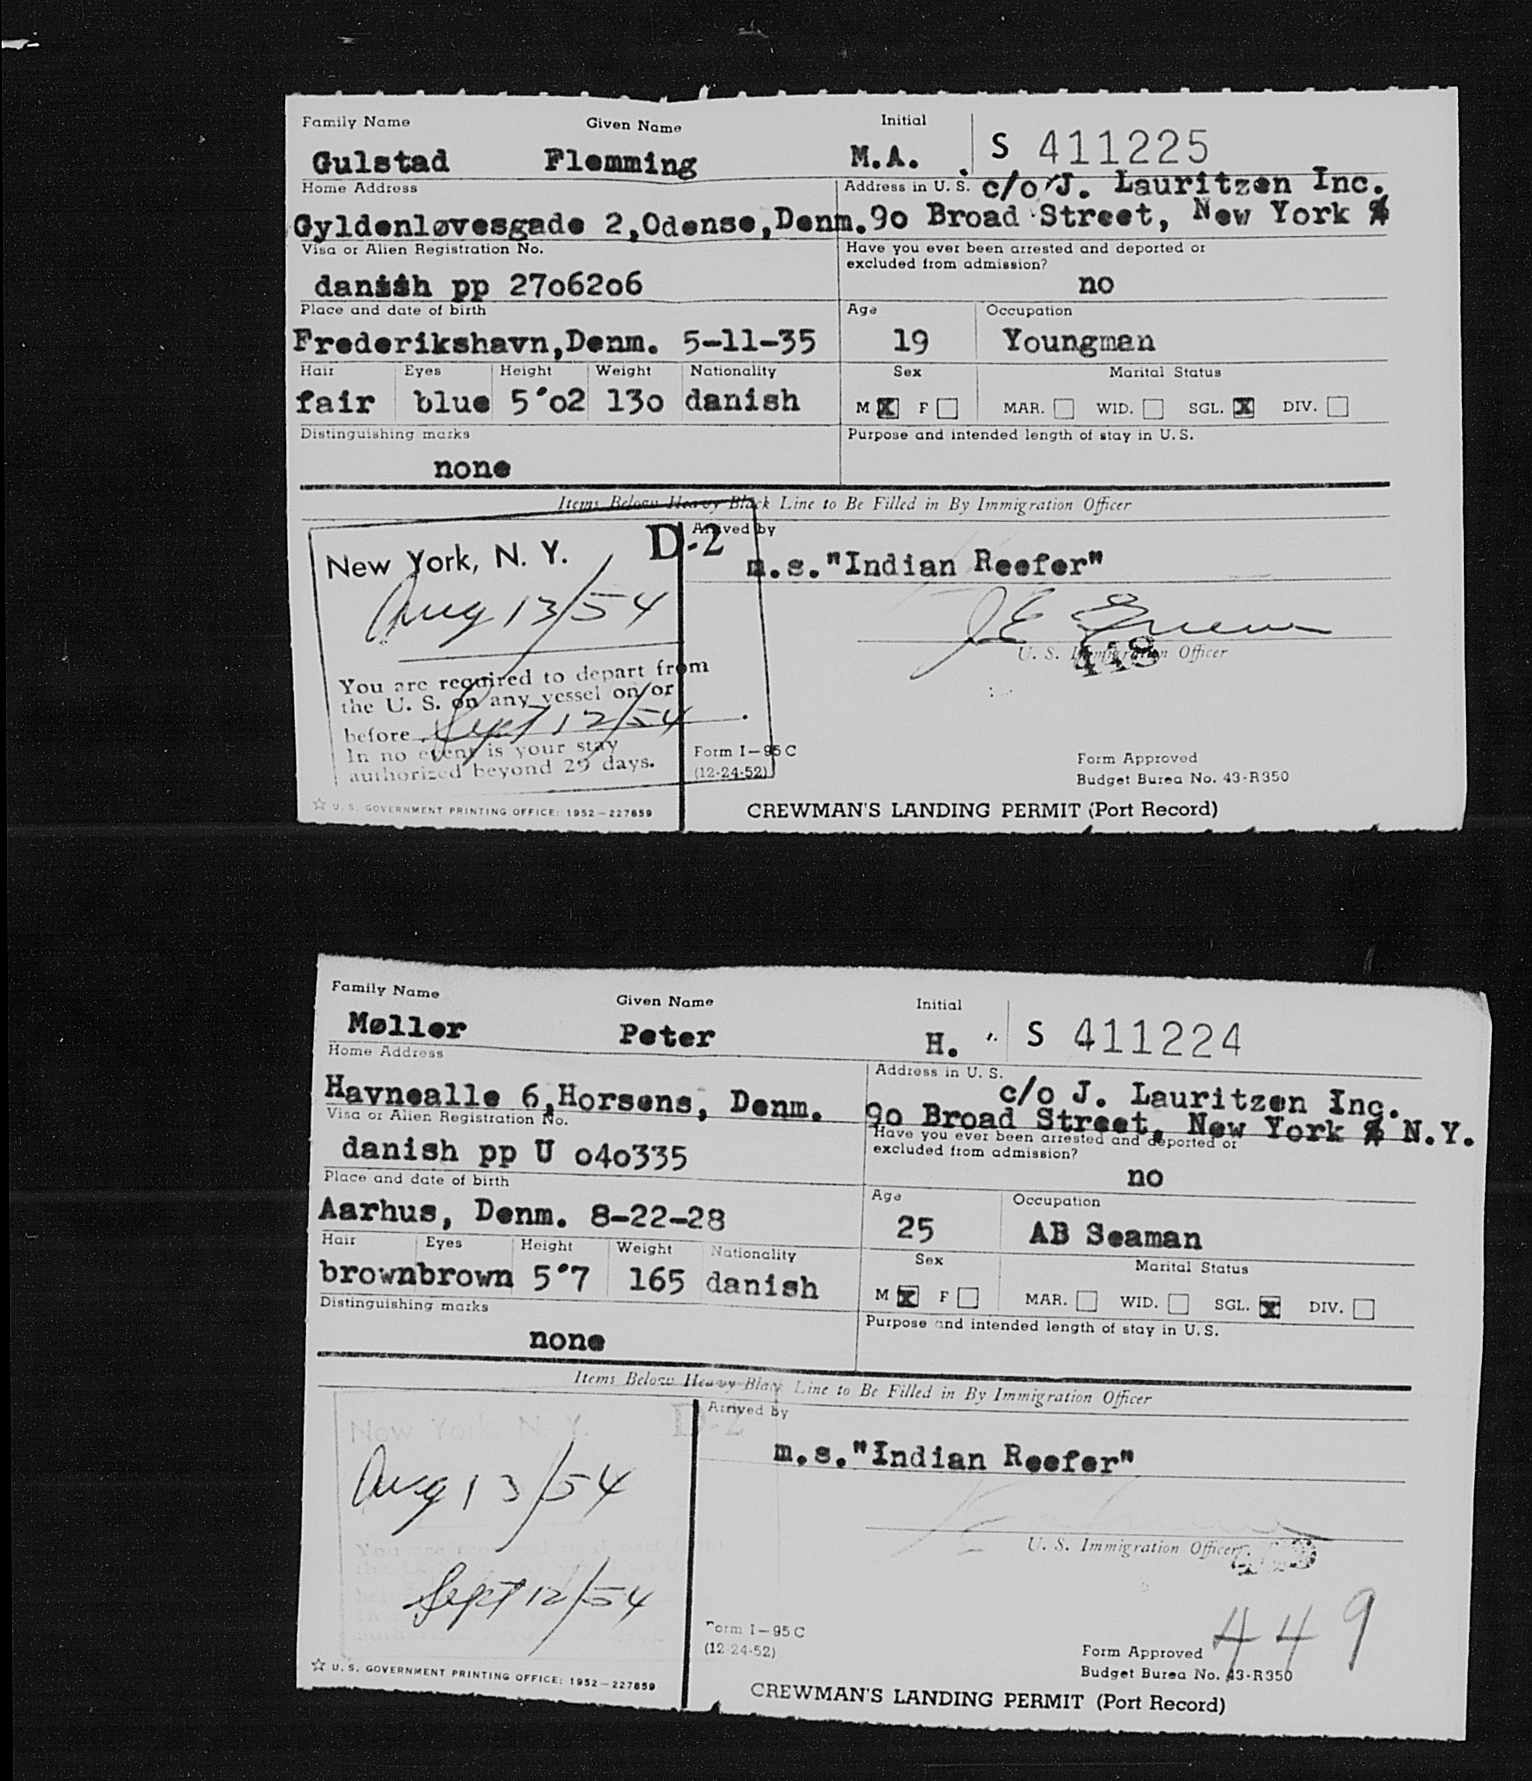 Family Name Given Name Initial
Gulstad Flemming M.A. S 411225
Home Address Address in U. S. c/o J. Lauritzen Inc.
Gyldenløvesgade 2,Odense,Denm. 9o Broad Street, New York
Visa or Alien Registration No. Have you ever been arrested and deported or
excluded from admission?
danish pp 27o62o6 no
Place and date of birth Age Occupation
Frederikshavn,Denm. 5-11-35 19 Youngman
Hair Eyes Height Weight Nationality Sex Marital Status
fair blue 5'o2 13o danish M X F MAR. WID. SGL. X DIV.
Distinguishing marks Purpose and intended length of stay in U.S.
none
Items Below Heavy Black Line to Be Filled in By Immigration Officer
New York, N. Y. D-2 Arrived by
m.s."Indian Reefer"
Aug 13/54
U. S. Immigration Officer
You are required to depart from
the U. S. on any vessel on or
before Sept 12/54
In no event is your stay
authorized beyond 29 days.
Form I-95C
(12-24-52)
Form Approved
Budget Burea No. 43-R350
☆ U. S. GOVERNMENT PRINTING OFFICE: 1952-227859
CREWMAN'S LANDING PERMIT (Port Record)
Family Name Given Name Initial
Møller Peter H. S 411224
Home Address Address in U. S.
c/o J. Lauritzen Inc.
Havnealle 6,Horsens, Denm. 9o Broad Street, New York N.Y.
Visa or Alien Registration No. Have you ever been arrested and deported or
excluded from admission?
danish pp U o4o335 no
Place and date of birth Age Occupation
Aarhus, Denm. 8-22-28 25 AB Seaman
Hair Eyes Height Weight Nationality Sex Marital Status
brown brown 5'7 165 danish M X F MAR. WID. SGL. X DIV.
Distinguishing marks Purpose and intended length of stay in U.S.
none
Items Below Heavy Black Line to Be Filled in By Immigration Officer
New York, N. Y. D-2 Arrived By
m.s."Indian Reefer"
Aug 13/54
U. S. Immigration Officer
Sept 12/54
Form I-95C
(12-24-52)
449
Form Approved
Budget Burea No. 43-R350
☆ U. S. GOVERNMENT PRINTING OFFICE: 1952-227859
CREWMAN'S LANDING PERMIT (Port Record)